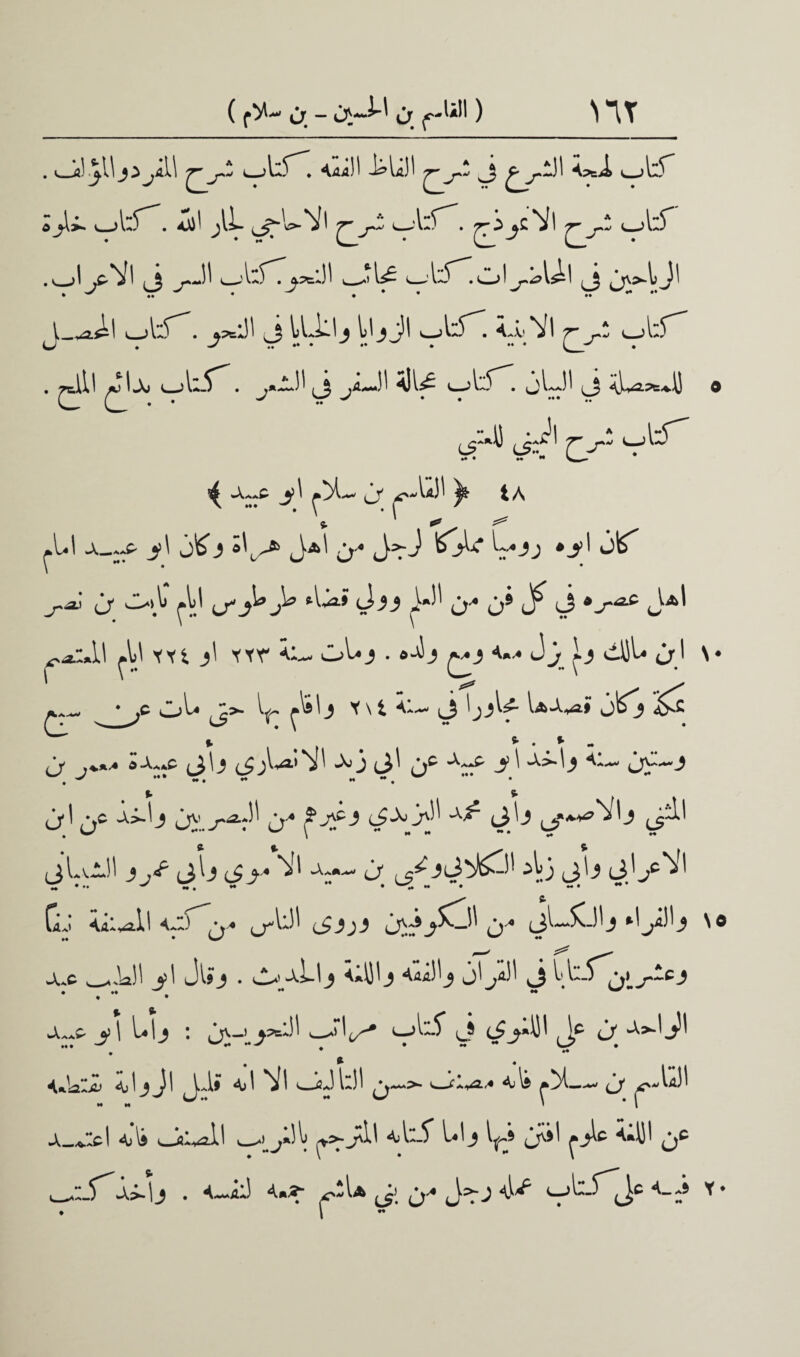 ( القاسم بن الحسين - بن سلام )
١٦٢
. كتاب لحجة الشروع في شرح الفاظ الفقه . كتاب شرح المفرد والمؤلف .
كتاب شرح الانموذج . كتاب شرح الاحاجي لجار الله . كتاب خلوة
الرياحين في المحاضرات . كتاب عجائب النحو . كتاب السر في الاعراب .
كتاب شرح الابنية . كتاب الزوايا والخبايا في النحو . كتاب المحصل
للمحصلة في البيان . كتاب عجالة السفر في الشعر . كتاب بدائع الملح .
٥
كتاب شرح اليميني للعتبي
٤٨ ﴿ القاسم بن سلام أبو عبيد ﴾
كان أبوه روميا مملوكا لرجل من أهل هراة وكان أبو عبيد امام
أهل عصره في كل فن من العلم وولى قضاء طرطوس أيام ثابت بن نصر
ابن مالك ولم يزل معه ومع ولده . ومات سنة ٢٢٣ أو ٢٢٤ أيام المعتصم
١٠
بمكة وكان قصدها مجاورا في سنة ٢١٤ واقام بها حتى مات عن سبع
وستين سنة واخذ أبو عبيد عن أبي زيد الانصاري وأبي عبيدة معمر بن
المثنى والاصمعي وأبي محمد اليزيدي وغيرهم من البصريين واخذ عن ابن
الاعرابي وأبي زياد الكلابي ويحيى بن سعيد الاموي وأبي عمرو الشيباني
والفراء والكسائي من الكوفيين وروى الناس من كتبه المصنفة نيفا
١٥
وعشرين كتابا في القرآن والفقه واللغة والحديث . وقال أبو الطيب عبد
الواحد بن علي اللغوي في كتاب مراتب النحويين : وأما أبو عبيد
القاسم بن سلام فانه مصنف حسن التاليف الا أنه قليل الرواية يقتطعه
عن اللغة علوم افتن فيها وأما كتابه المترجم بالغريب المصنف فانه اعتمد
فيه على كتاب عمله رجل من بني هاشم جمعه لنفسه . واخذ كتب
٢٠